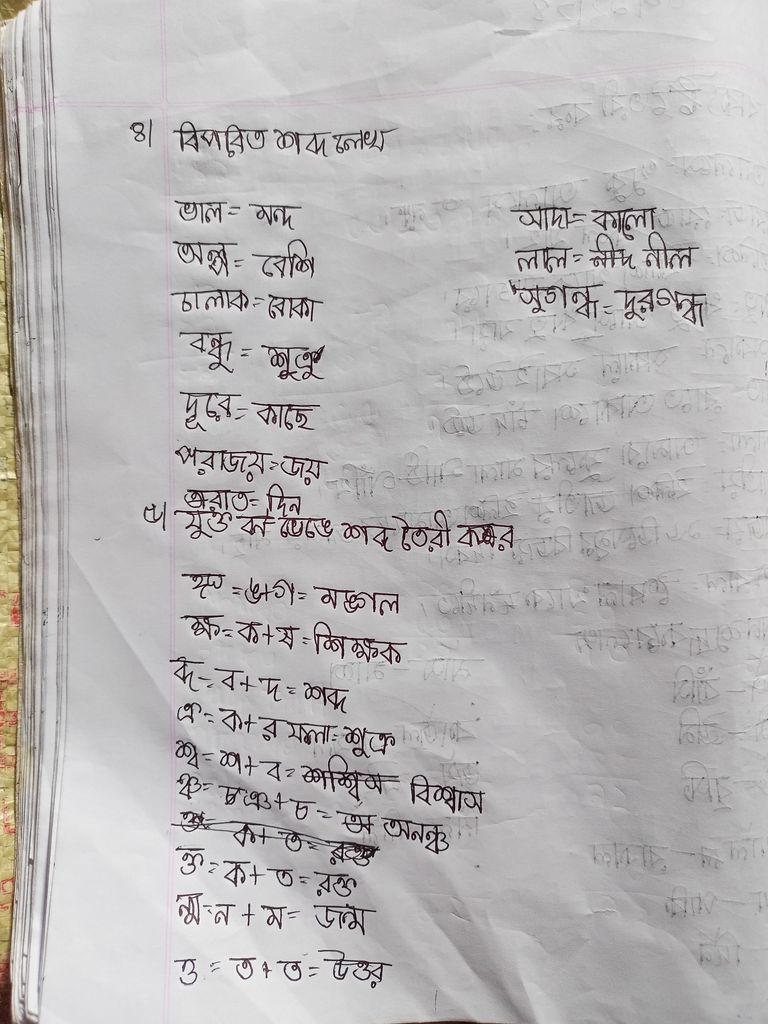 ৪| বিপরিত শব্দ লেখ
ভাল = মন্দ
অল্প = বেশি
চালাক = বোকা
বন্ধু = শুত্রু
দূরে = কাছে
পরাজয় = জয়
রাত = দিন
সাদা = কালো
লাল = নীল
সুগন্ধ = দুরগন্ধ
৫| যুক্ত বর্ন ভেঙে শব্দ তৈরী কর
ঙ্গ = ঙ+গ = মঙ্গল
ক্ষ = ক+ষ = শিক্ষক
ব্দ = ব+দ = শব্দ
ক্র = ক+র ফলা = শুক্র
শ্ব = শ+ব = বিশ্বাস
ঞ্চ = ঞ+চ = অনঞ্চ
ক্ত = ক+ত = রক্ত
ন্ম = ন+ম = জন্ম
ত্ত = ত+ত = উত্তর